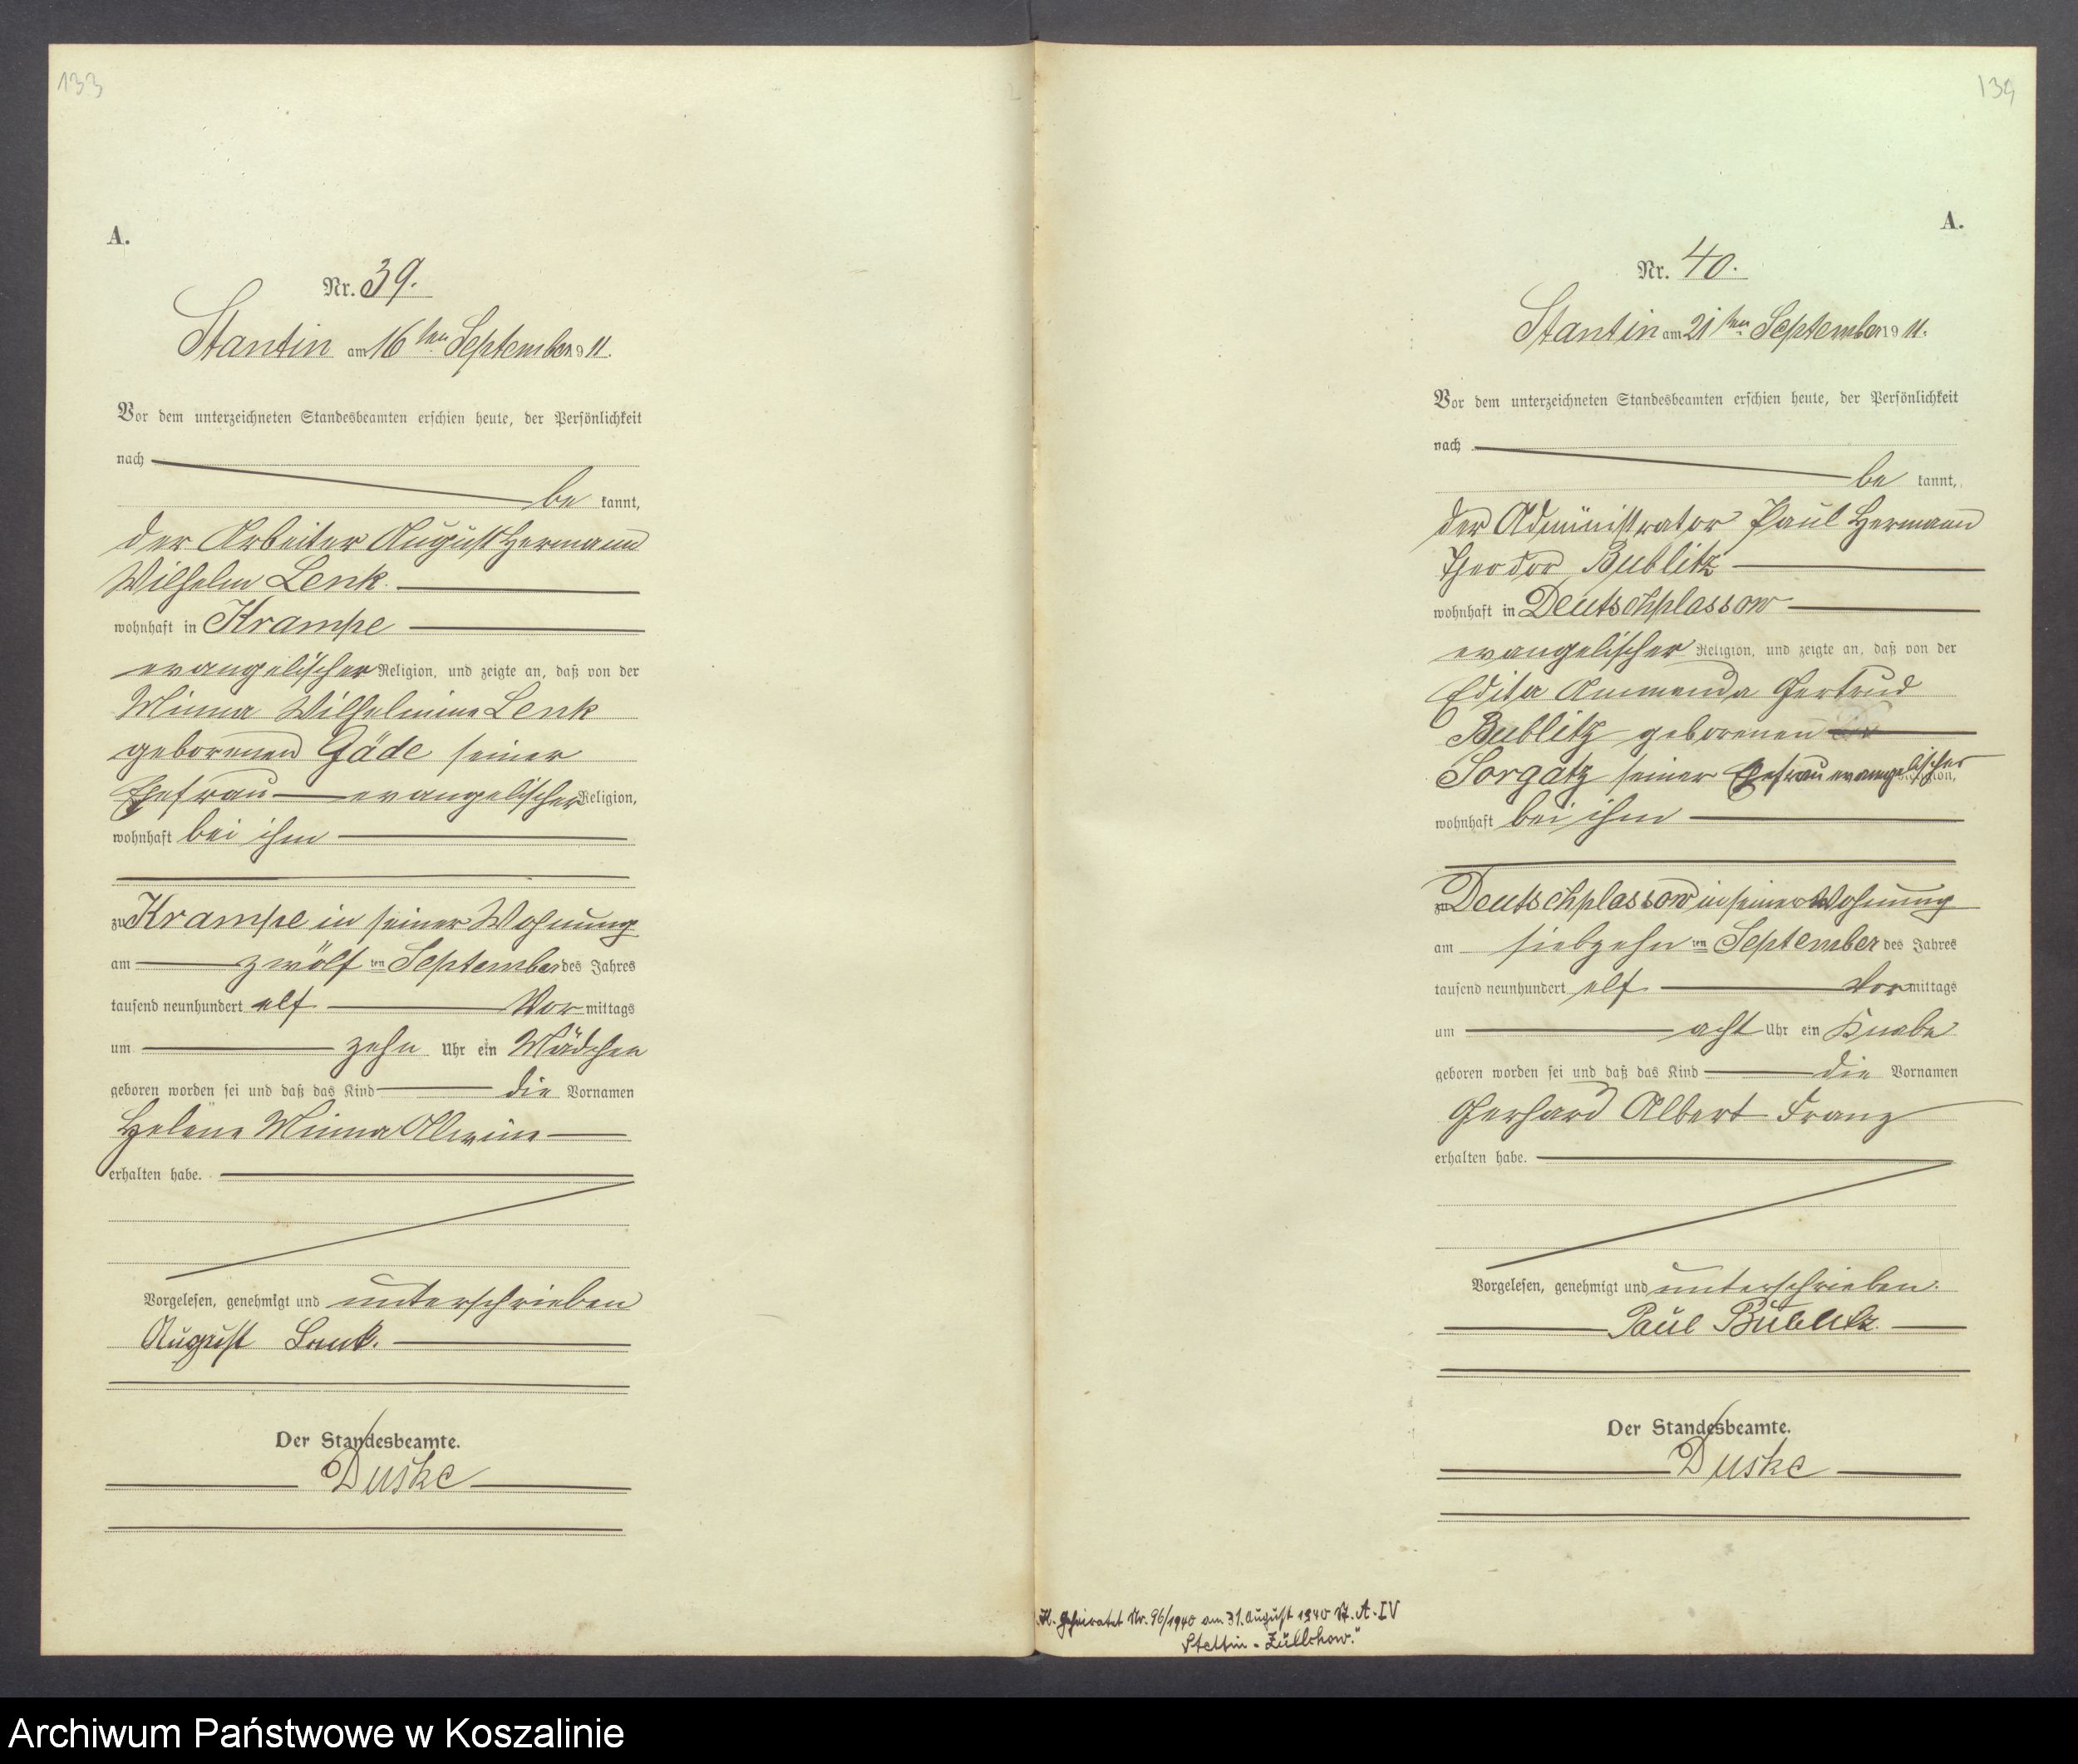 133
A.
Nr. 39.
Stantin am 16ten September 1911.
Vor dem unterzeichneten Standesbeamten erschien heute, der Persönlichkeit
nach
be kannt,
der Arbeiter August Hermann
Wilhelm Lenk
wohnhaft in Krampe
evangelischer Religion, und zeigte an, daß von der
Minna Wilhelmine Lenk
geborenen Gäde seiner
Ehefrau evangelischer Religion,
wohnhaft bei ihm
zu Krampe in seiner Wohnung
am zwölf ten September des Jahres
tausend neunhundert elf Vor mittags
um zehn Uhr ein Mädchen
geboren worden sei und daß das Kind die Vornamen
Helene Minna Alwine
erhalten habe.
Vorgelesen, genehmigt und unterschrieben
August Lenk.
Der Standesbeamte.
Duske
134
A.
Nr. 40.
Stantin am 21ten September 1911.
Vor dem unterzeichneten Standesbeamten erschien heute, der Persönlichkeit
nach
be kannt,
der Administrator Paul Hermann
Theodor Bublitz
wohnhaft in Deutschplassow
evangelischer Religion, und zeigte an, daß von der
Edita Ammanda Gertrud
Bublitz geborenen
Sorgatz seiner Ehefrau evangelischer Religion,
wohnhaft bei ihm
zu Deutschplassow in seiner Wohnung
am siebzehn ten September des Jahres
tausend neunhundert elf Vor mittags
um acht Uhr ein Knabe
geboren worden sei und daß das Kind die Vornamen
Gerhard Albert Franz
erhalten habe.
Vorgelesen, genehmigt und unterschrieben.
Paul Bublitz.
Der Standesbeamte.
Duske
Geheiratet Nr. 96/1940 am 31. August 1940 St. A. IV
Stettin-Züllchow."
Archiwum Państwowe w Koszalinie